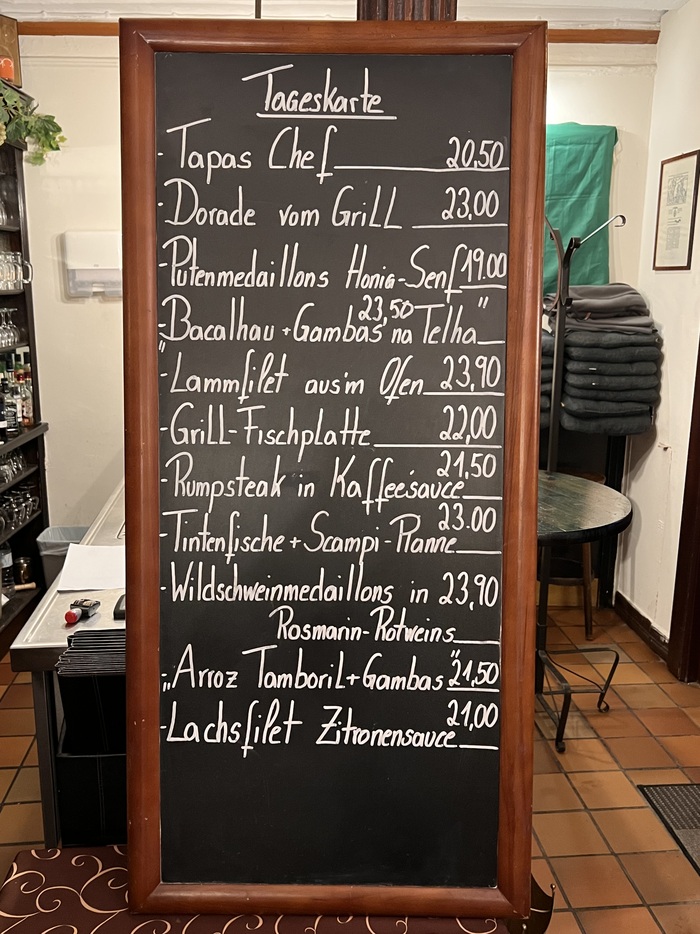 Tageskarte
- Tapas Chef 20,50
- Dorade vom Grill 23,00
- Putenmedaillons Honig-Senf 19.00
- "Bacalhau + Gambas na Telha" 23,50
- Lammfilet aus'm Ofen 23,90
- Grill-Fischplatte 22,00
- Rumpsteak in Kaffeesauce 21,50
- Tintenfische + Scampi-Pfanne 23.00
- Wildschweinmedaillons in 23,90
Rosmarin-Rotweins
- "Arroz Tamboril + Gambas" 21,50
- Lachsfilet Zitronensauce 21,00